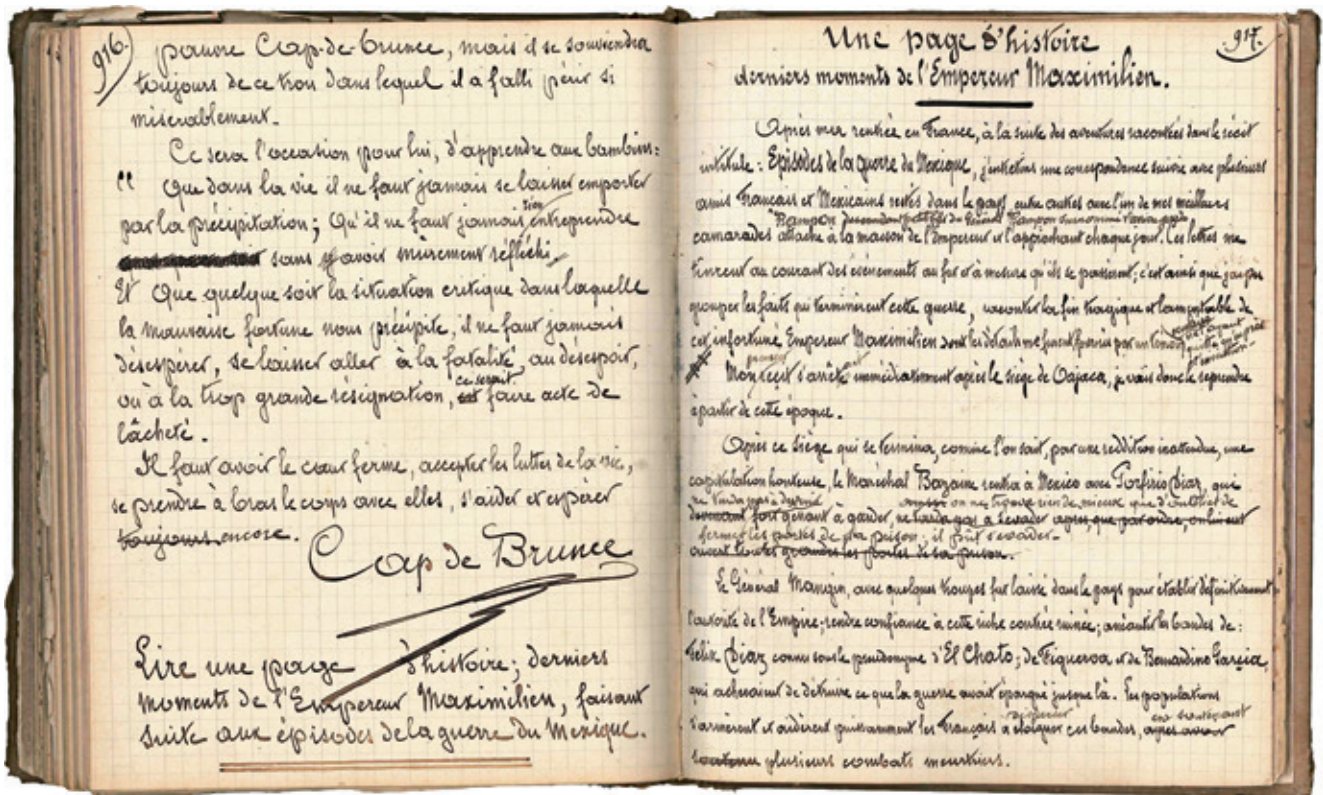 916.
pauvre Cap-de-Brunce, mais il se souviendra
toujours de ce trou dans lequel il a falli périr si
misérablement.
Ce sera l'occasion pour lui, d'apprendre aux bambins:
" Que dans la vie il ne faut jamais se laisser emporter
par la précipitation; Qu'il ne faut jamais rien entreprendre
sans y avoir mûrement réfléchi.
Et Que quelque soit la situation critique dans laquelle
la mauvaise fortune nous précipite, il ne faut jamais
désespérer, se laisser aller à la fatalité, au désespoir,
où à la trop grande résignation, ce serait faire acte de
lâcheté.
Il faut avoir le cœur ferme, accepter les luttes de la vie,
se prendre à bras le corps avec elles, s'aider et espérer
toujours encore.
Cap de Brunce
Lire une page d'histoire; derniers
moments de l'Empereur Maximilien, faisant
suite aux épisodes de la guerre du Mexique.
917.
Une page d'histoire
derniers moments de l'Empereur Maximilien.
Après ma rentrée en France, à la suite des aventures racontées dans le récit
intitulé: Episodes de la guerre du Mexique, j'entretins une correspondance suivie avec plusieurs
amis Français et Mexicains restés dans le pays, entre autres avec l'un de mes meilleurs
Rampon descendant du Général Rampon surnommé
camarades attaché à la maison de l'Empereur et l'approchant chaque jour. Ces lettres me
tinrent au courant des événements au fur et à mesure qu'ils se passèrent; c'est ainsi que j'ai pu
grouper les faits qui terminèrent cette guerre, raconter la fin tragique et lamentable de
cet infortuné Empereur Maximilien dont les détails me furent fournis par un témoin
Mon récit s'arrête immédiatement après le siège de Oajaca, je vais donc le reprendre
à partir de cette époque.
Après ce siège qui se termina, comme l'on sait, par une reddition inattendue, une
capitulation honteuse, le Maréchal Bazaine rentra à Mexico avec Porfirio Diaz, qui
ne tarda pas à devenir on ne trouva rien de mieux que d'oublier de
devenant fort gênant à garder, ne tarda pas à s'évader après, que par ordre, on lui eut
fermer les portes de sa prison, il pût s'évader.
ouvert toutes grandes les portes de sa prison.
Le Général Mangin, avec quelques troupes fut laissé dans le pays pour établir définitivement
l'autorité de l'Empire; rendre confiance à cette riche contrée ruinée; anéantir les bandes de:
Félix Diaz connu sous le pseudonyme d'El Chato; de Figueroa et de Bernardino Garcia,
qui achevaient de détruire ce que la guerre avait épargné jusque là. Les populations
s'armèrent et aidèrent puissamment les Français à éloigner ces bandes, en soutenant
après avoir
soutenu plusieurs combats meurtriers.